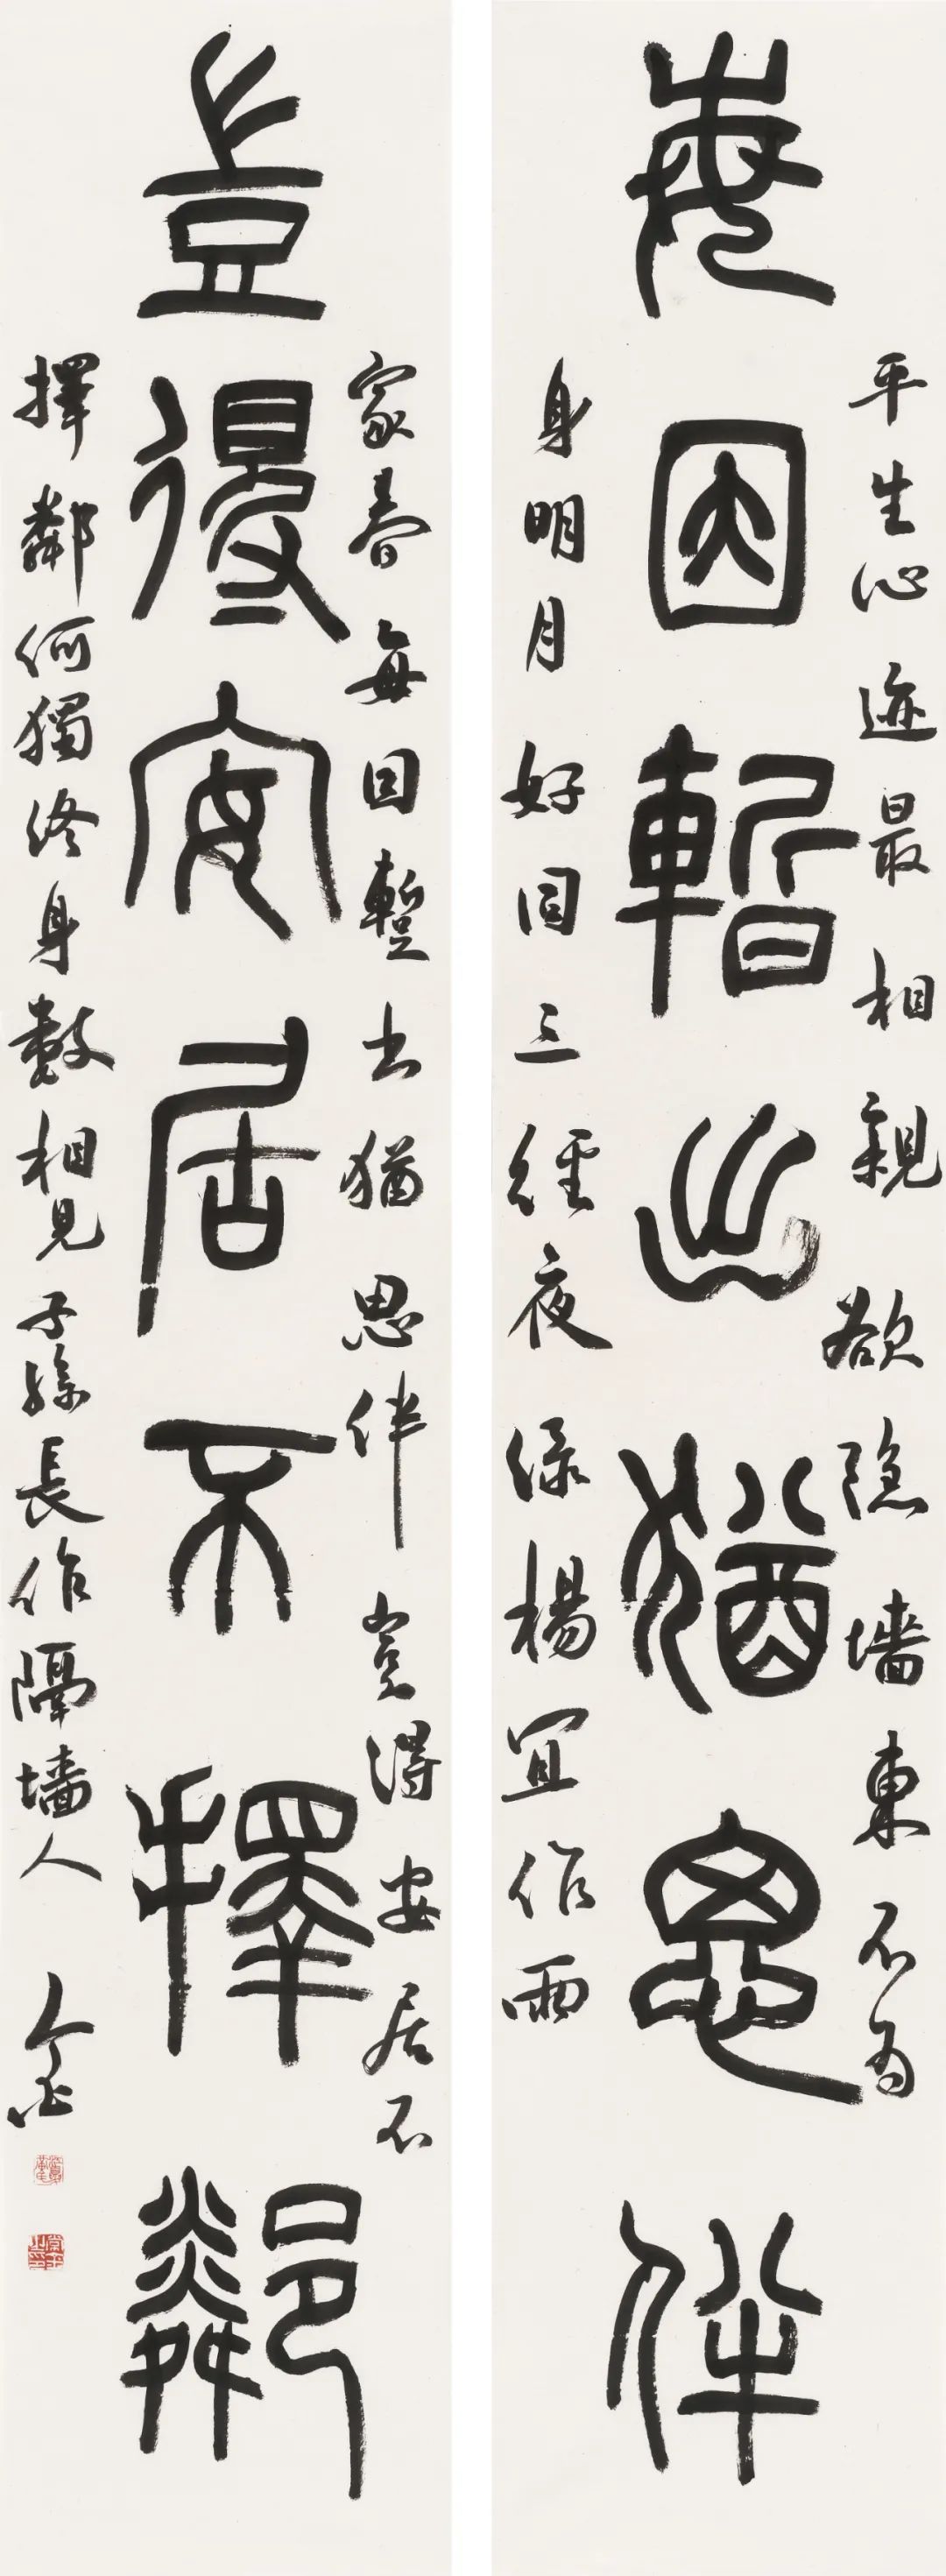 每因暫出猶思伴
豈得安居不擇鄰
平生心迹最相親欲隐墙東不為
身明月好同三徑夜綠楊宜作兩
家春每因暫出猶思伴豈得安居不
擇鄰何獨終身數相見子孫長作隔墙人